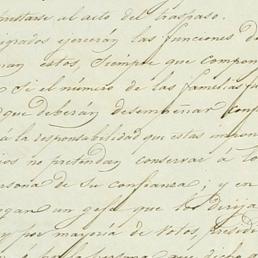 al acto del traspaso.
ejercerán las funciones d
estos, siempre que compon
Si el número de las familias fu
que deberán desempeñar conf
á la responsabilidad que estas impon
no pretendan conservar á to
persona de su confianza; y en
un gefe que los dirija
y por mayoria de votos, presidi